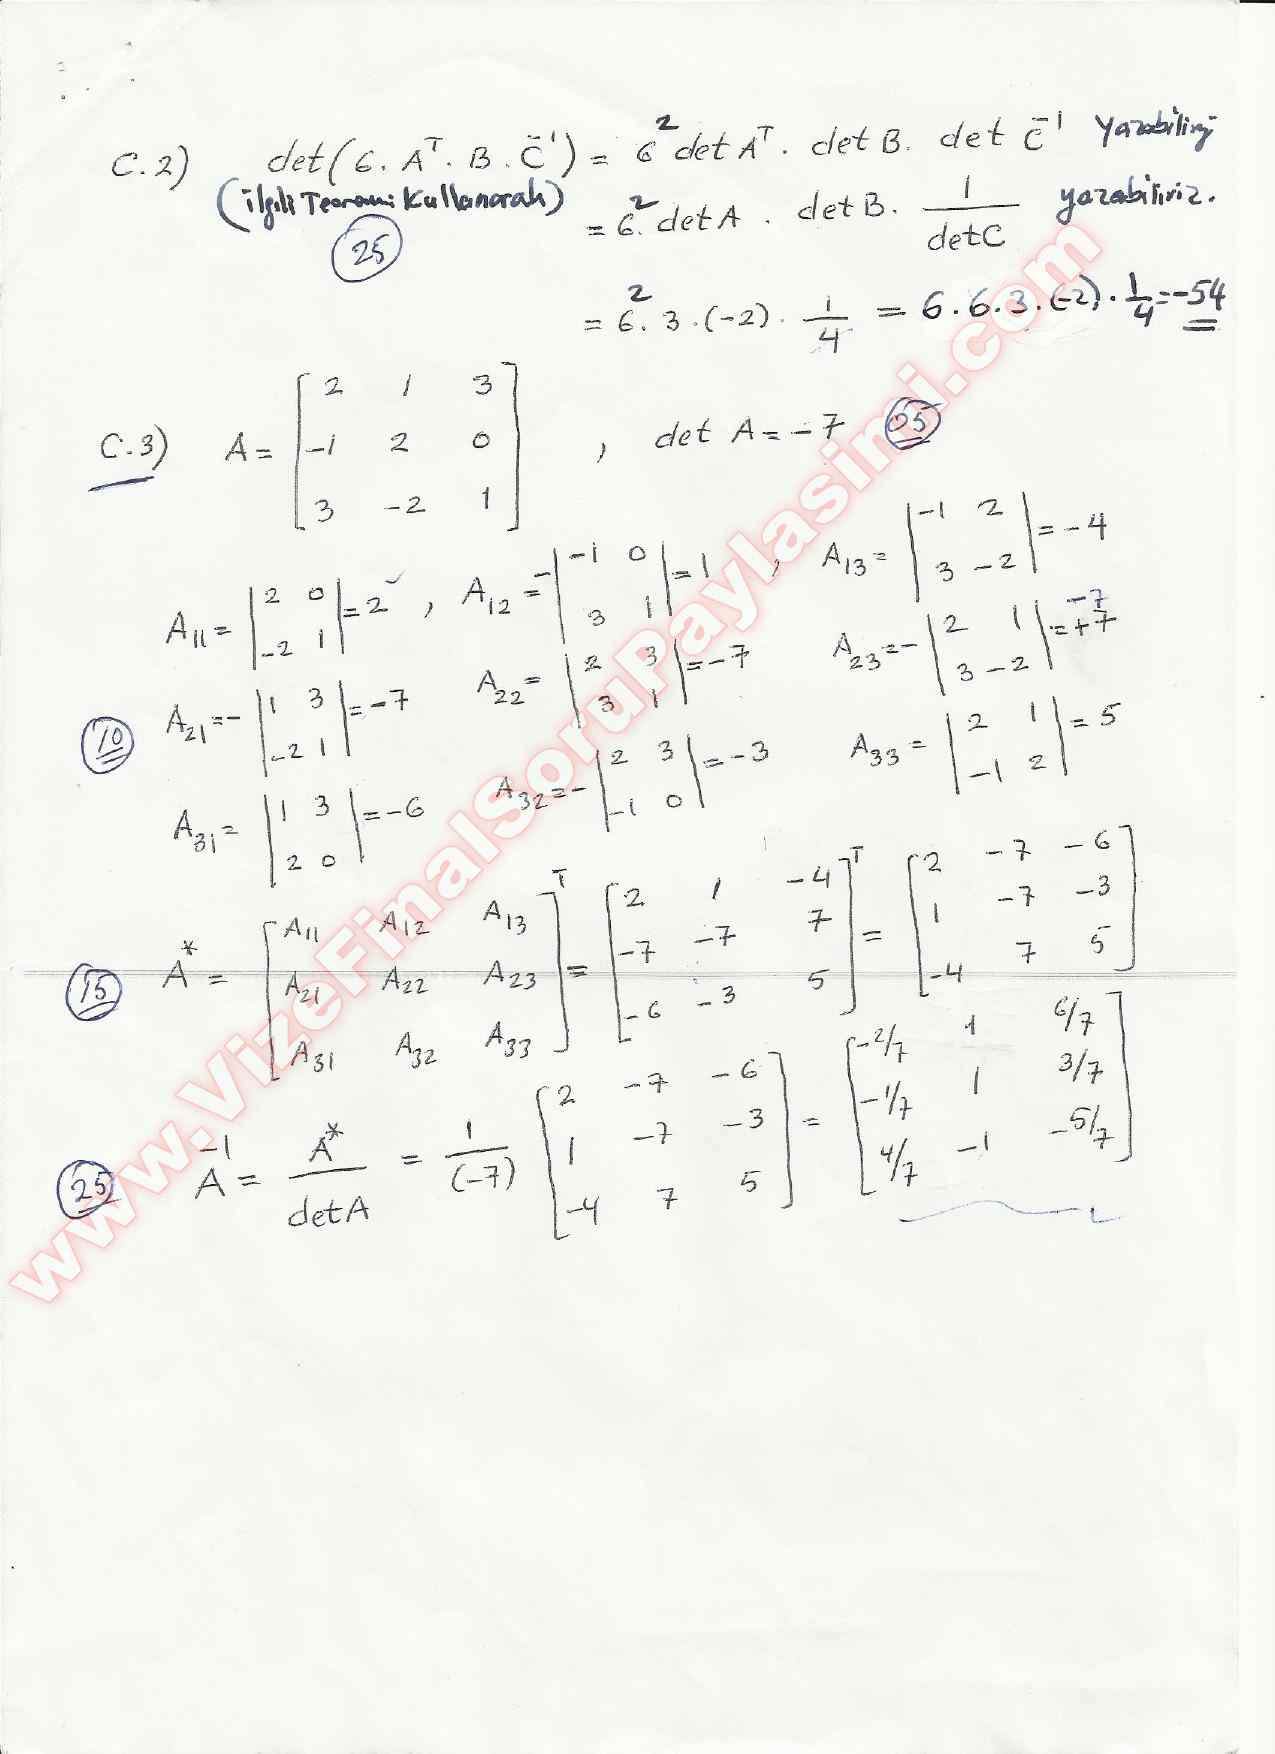 C.2) det(6.Aᵀ.B.C⁻¹) = 6² det Aᵀ. det B. det C⁻¹ yazabiliriz
(ilgili Teoremi Kullanarak) = 6². det A . det B. 1/detC yazabiliriz.
25
= 6². 3 .(-2) . 1/4 = 6.6.3.(-2). 1/4 = -54
C.3) A = [2 1 3; -1 2 0; 3 -2 1] , det A = -7 05
A₁₁ = |2 0; -2 1| = 2 , A₁₂ = -|-1 0; 3 1| = 1 , A₁₃ = |-1 2; 3 -2| = -4
A₂₁ = -|1 3; -2 1| = -7 A₂₂ = |2 3; 3 1| = -7 A₂₃ = -|2 1; 3 -2| = +7 -7
10
A₃₁ = |1 3; 2 0| = -6 A₃₂ = -|2 3; -1 0| = -3 A₃₃ = |2 1; -1 2| = 5
15 A* = [A₁₁ A₁₂ A₁₃; A₂₁ A₂₂ A₂₃; A₃₁ A₃₂ A₃₃]ᵀ = [2 1 -4; -7 -7 7; -6 -3 5]ᵀ = [2 -7 -6; 1 -7 -3; -4 7 5]
25 A⁻¹ = A*/detA = 1/(-7) [2 -7 -6; 1 -7 -3; -4 7 5] = [-2/7 1 6/7; -1/7 1 3/7; 4/7 -1 -5/7]
www.VizeFinalSoruPaylasimi.com